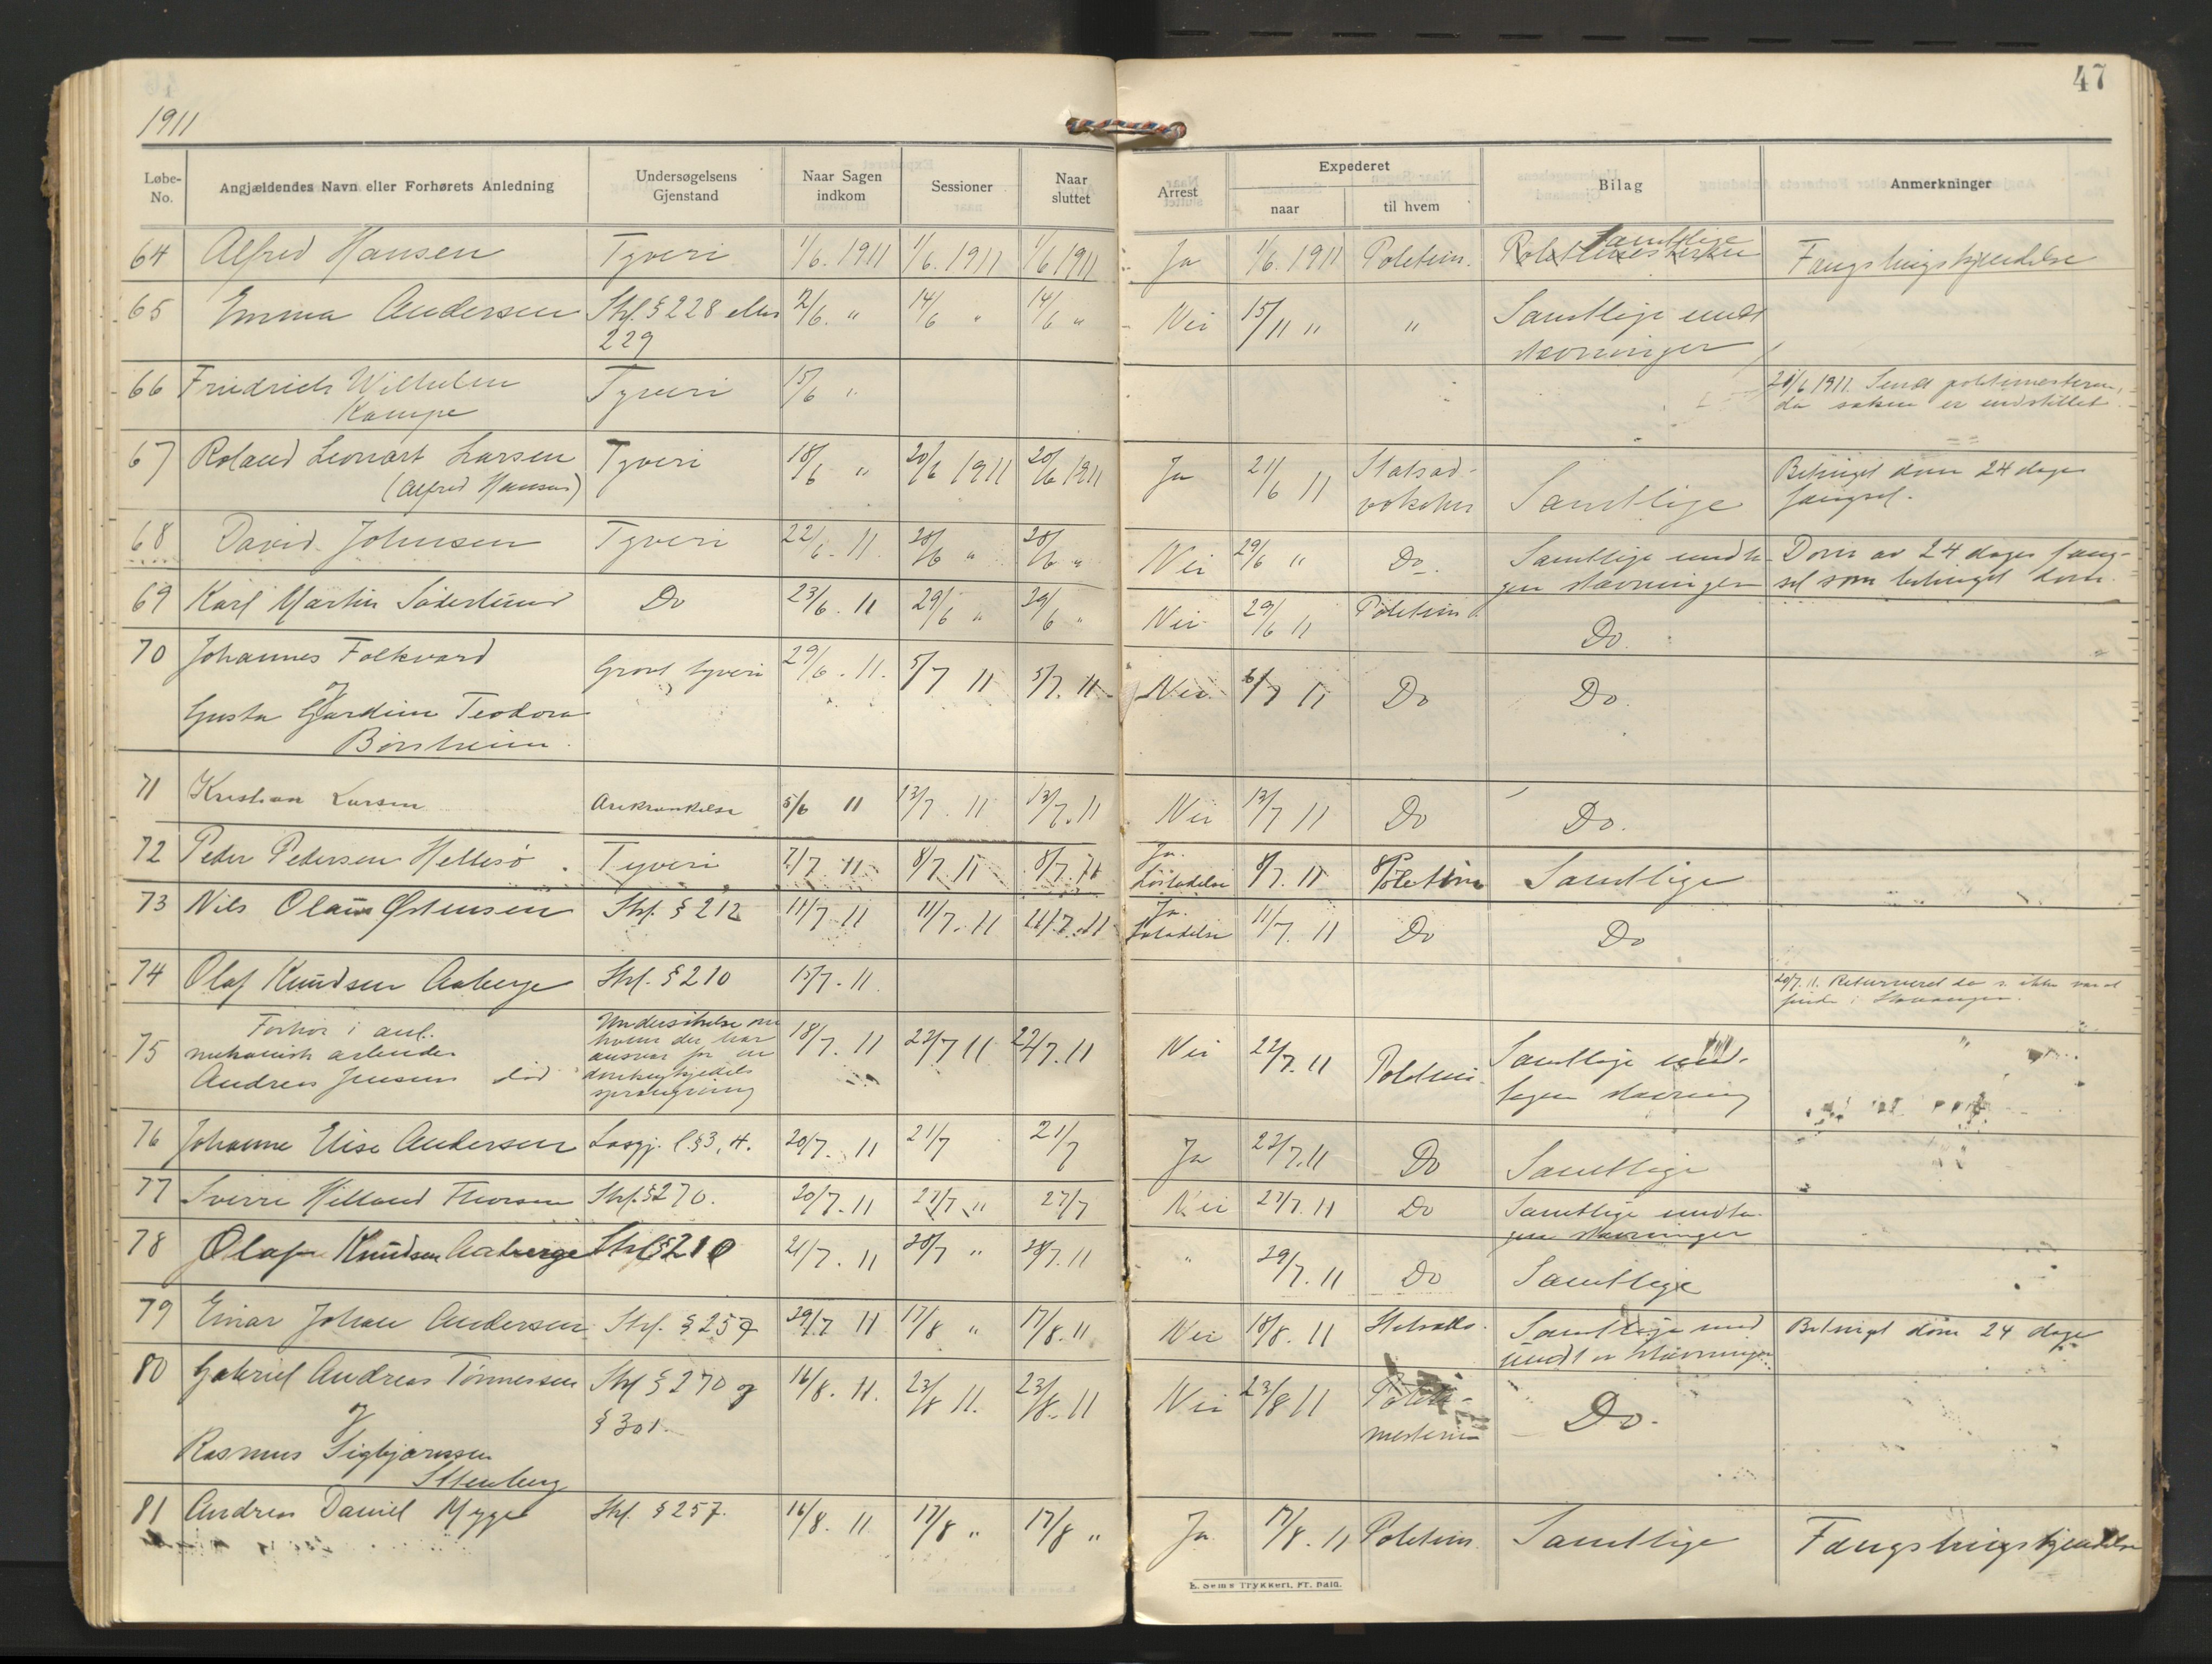 47
1911
Løbe-No. Angjældendes Navn eller Forhørets Anledning Undersøgelsens Gjenstand Naar Sagen indkom Sessioner Naar sluttet Arrest Expederet naar til hvem Bilag Anmerkninger
64 Alfred Hansen Tyveri 1/6. 1911 1/6. 1911 1/6 1911 Ja 1/6. 1911 Politim. Samtlige Fængslingskjendelse
65 Emma Andersen Stfl. § 228 eller 2/6. " 14/6 " 14/6 " Nei 15/11 " " Samtlige undt
229 stævninger
66 Friedrich Wilhelm Tyveri 15/6 " 20/6 1911. Send politimesteren,
Kampe da saken er indstillet.
67 Roland Leonart Larsen Tyveri 18/6 " 20/6 1911 20/6 1911 Ja 21/6 11 Statsad- Samtlige Betinget dom 24 dages
(Alfred Hansen) vokaten fængsel.
68 David Johnsen Tyveri 22/6. 11. 28/6 " 28/6 " Nei 29/6 " Do. Samtlige undta- Dom av 24 dages fæng-
gen stævningen sel som betinget dom.
69 Karl Martin Söderlund Do 23/6. 11 29/6 " 29/6 " Nei 29/6 11 Politim Do.
70 Johannes Folkvord Grovt tyveri 29/6. 11. 5/7 11 5/7. 11 Nei 6/7 11 Do Do.
og
Gusta Gjardine Teodora
Børsheim.
71 Kristian Larsen Ærekrænkelse 5/6 11 13/7. 11 13/7. 11 Nei 13/7 11 Do Do.
72 Peder Pedersen Hellesø Tyveri 7/7 11 8/7. 11 8/7. 11 Ja. Løsladelse 8/7. 11 Politim Samtlige
73 Nils Olaus Østensen Stfl. § 212 11/7. 11 11/7. 11 11/7. 11 Ja. Løsladelse 11/7. 11 Do Do
74 Olaf Knudsen Aaberge Stfl. § 210 15/7. 11. 20/7. 11. Returneret da s. ikke var at
finde i Stavanger.
75 Forhør i anl. Undersøkelse om 18/7. 11 22/7 11 22/7. 11 Nei 22/7. 11 Politim. Samtlige und-
mekanisk arbeider hvem der har tagen stævning
Andreas Jensens død ansvar for en
dunkeykjedels
sprængning
76 Johanne Elise Andersen Løsgj. l. § 3, 4. 20/7. 11 21/7 21/7 Ja 22/7. 11 Do Samtlige
77 Sverre Hilland Thorsen Stfl. § 270. 20/7. 11 27/7 " 27/7 Nei 27/7. 11 Do Samtlige undta-
gen stævninger
78 Olaf Knudsen Aaberge Stfl § 210 21/7. 11 28/7 " 28/7. 11 " 29/7. 11 Do Samtlige
79 Einar Johan Andersen Stfl. § 257 29/7 11 17/8 " 17/8. 11 Nei 18/8. 11 Statsadv. Samtlige med Betinget dom 24 dage
undt av stævningen
80 Gabriel Andreas Tønnessen Stfl § 270 og 16/8. 11. 23/8 11. 23/8. 11 Nei 23/8 11 Politi- Do.
og § 301. mesteren
Rasmus Sigbjørnsen
Stenberg
81 Andreas Daniel Mygge Stfl. § 257. 16/8. 11 17/8 " 17/8 " Ja 17/8. 11 Politim. Samtlige Fængslingskjendelse
E. Sem's Trykkeri, Fr.hald.